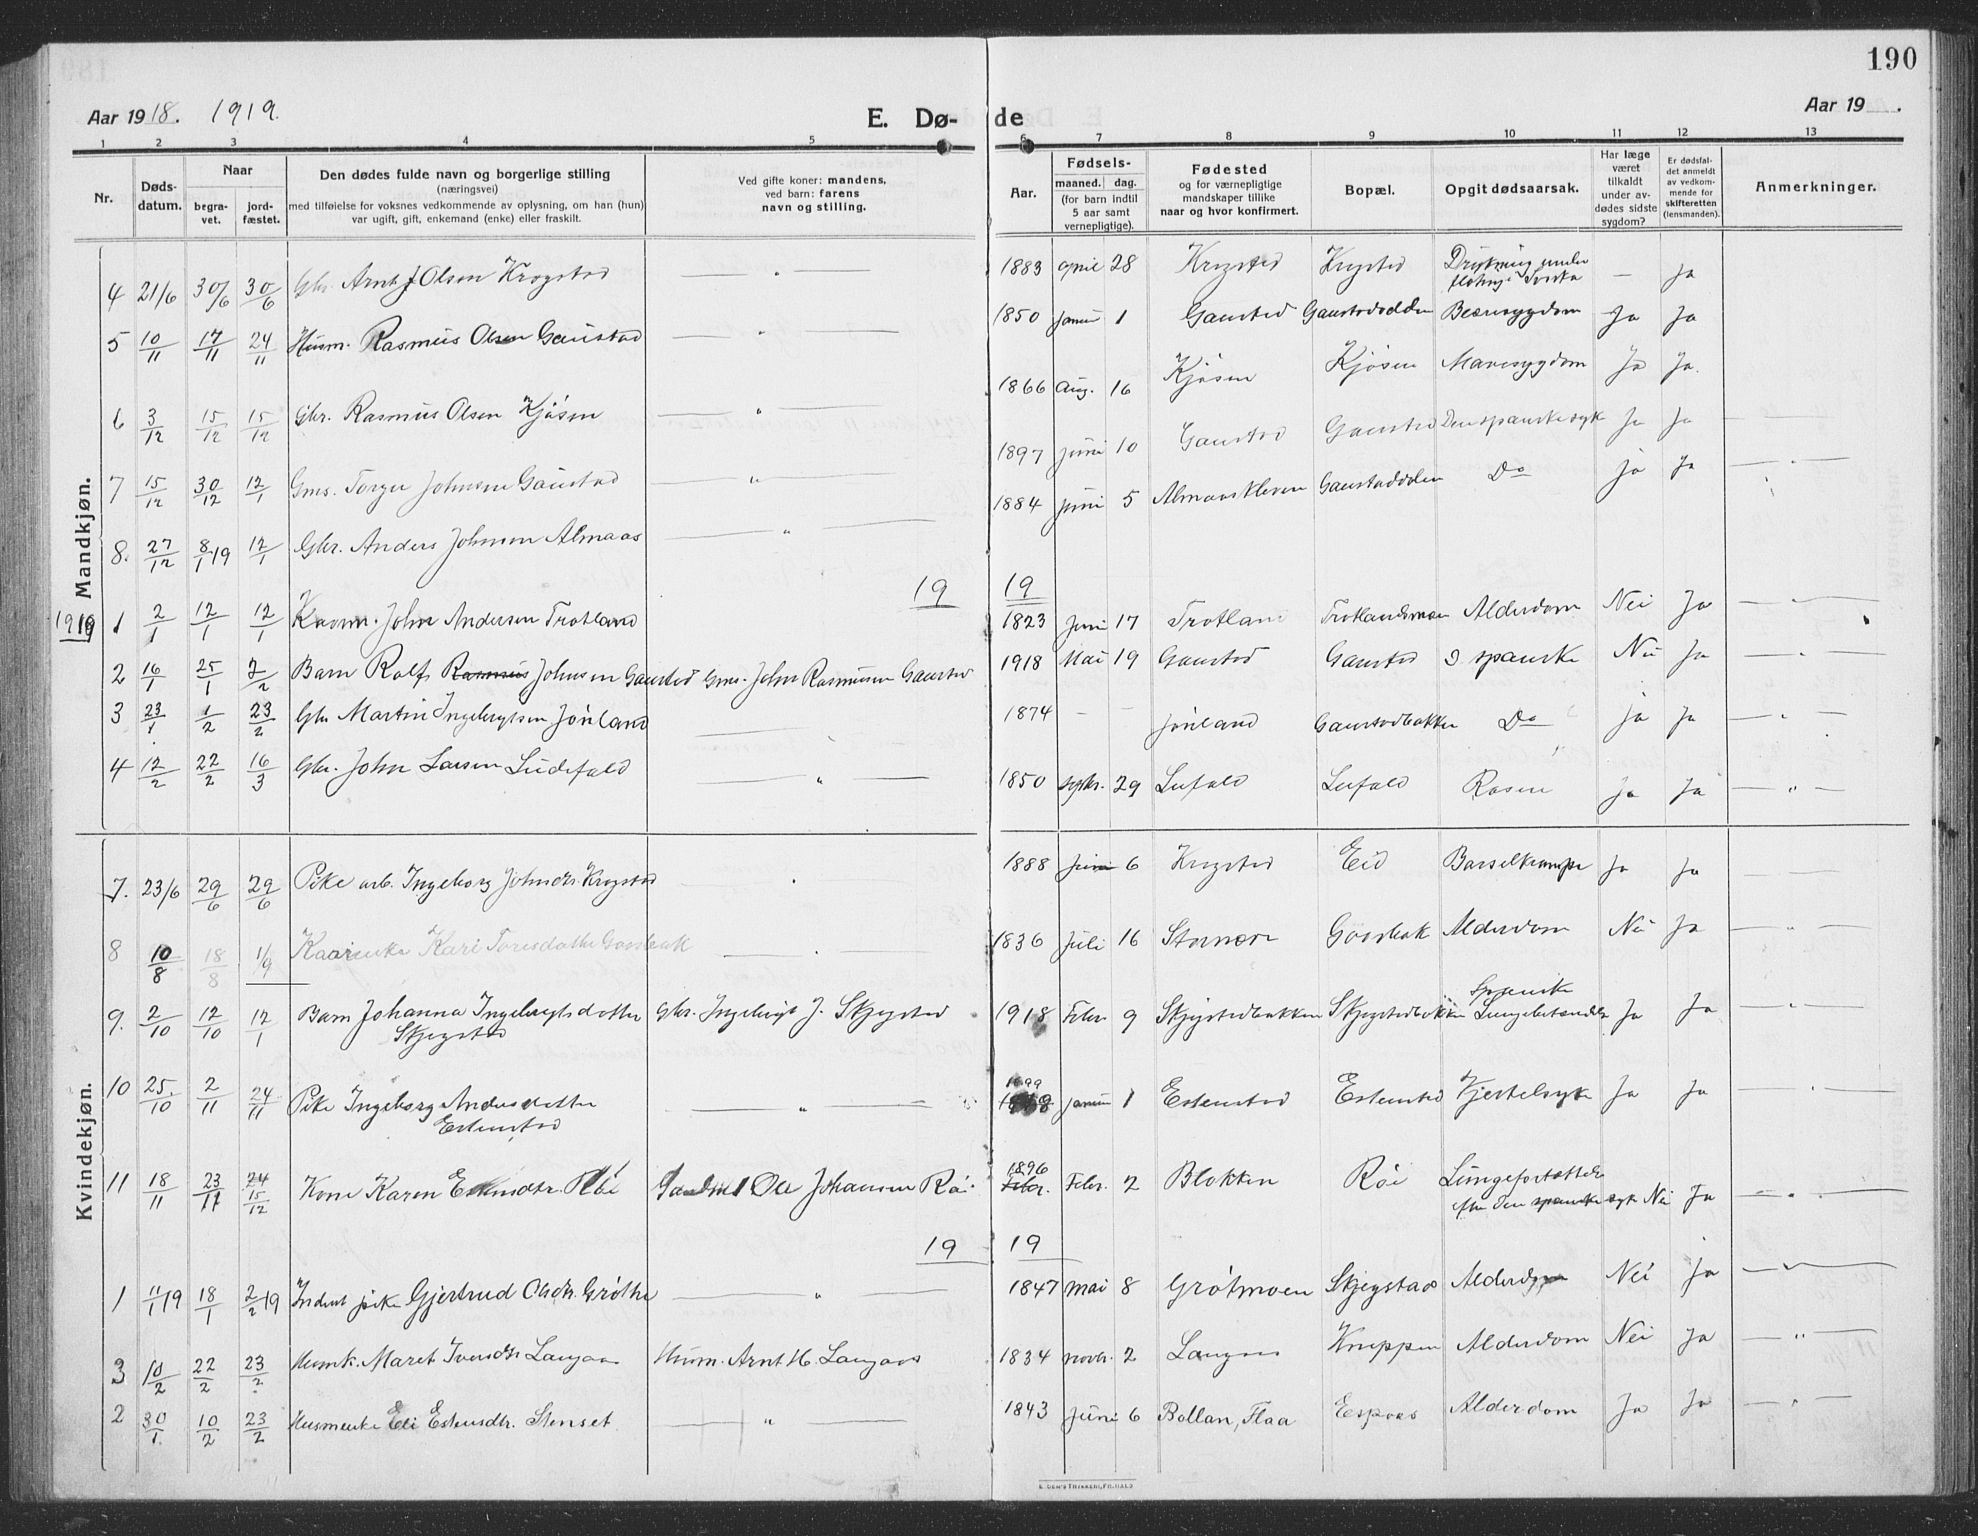 190
Aar 1918. 1919. E. Dø- de Aar 19 .
1 2 3 4 5 6 7 8 9 10 11 12 13
Nr. Døds-datum. Naar begra-vet. jord-fæstet. Den dødes fulde navn og borgerlige stilling (næringsvei) med tilføielse for voksnes vedkommende av oplysning, om han (hun) var ugift, gift, enkemand (enke) eller fraskilt. Ved gifte koner: mandens, ved barn: farens navn og stilling. Aar. Fødsels- maaned. dag. (for barn indtil 5 aar samt vernepligtige). Fødested og for værnepligtige mandskaper tillike naar og hvor konfirmert. Bopæl. Opgit dødsaarsak. Har læge været tilkaldt under av-dødes sidste sygdom? Er dødsfal-det anmeldt av vedkom-mende for skifteretten (lensmanden). Anmerkninger.
Mandkjøn.
4 21/6 30/6 30/6 Gbr. Arnt J Olsen Krogstad — " — 1883 April 28 Krogstad Krogstad Drukning under fløtning i — Ja
5 10/11 17/11 24/11 Husm. Rasmus Olsen Gaustad — " — 1850 Januar 1 Gaustad Gaustadodden Ja Ja
6 3/12 15/12 15/12 Gbr. Rasmus Olsen Kjøsen — " — 1866 Aug. 16 Kjøsen Kjøsen Mavesygdom Ja Ja.
7 15/12 30/12 12/1 Gms. Torger Johnsen Gaustad — " — 1897 Juni 10 Gaustad Gaustad Den spanske syk Ja Ja — " —
8. 27/12 8/1 19 12/1 Gbr. Anders Johnsen Almaas — " — 1884 Juni 5 Almaaskleven Gaustadodden Do Ja Ja — " —
19 19
1919 1 2/1 12/1 12/1 John Andersen Trotland 1823 Juni 17 Trotland Trotlandsmoen Alderdom Nei Ja — " —
2 16/1 25/1 2/2 Barn Rolf Rasmus Johnsen Gaustad Gms. John Rasmusen Gaustad 1918 Mai 19 Gaustad Gaustad D spanske Nei Ja — " —
3 23/1 1/2 23/2 Gbr Martin Ingebrigtsen Jønland — " — 1874 — — Jønland Gaustadbakken Do Ja Ja — " —
4 12/2 22/2 16/3 Gbr. John Larsen Ludefald — " — 1850 Septbr. 29 Lufald Lufald Rosen Ja Ja — " —
Kvindekjøn.
7. 23/6 29/6 29/6 Pike arb. Ingeborg Johnsdtr. Krogstad — " — 1888 Juni 6 Krogstad Eid Barselkrampe Ja Ja — " —
8 10/8 18/8 1/9 Kaarenke Kari Toresdatter Goosbak — " — 1836 Juli 16 Goosbak Alderdom Nei Ja — " —
9. 2/10 12/10 12/1 Barn Johanna Ingebrigtsdatter Gbr. Ingebrigt J. Skjegstad 1918 Febr. 9 Skjegstadbakken Skjegstadbakken Spansk
Skjegstad Lungebetændelse Ja Ja — " —
10 25/10 2/11 24/11 Pike Ingeborg Andersdatter — " — 1899 Januar 1 Estenstad Estenstad Kjertelsyke Ja Ja — " —
Estenstad
11 18/11 23/11 24/11 15/12 Kone Karen Estensdtr. Røi Gaardm. Ole Johansen Røi 1896 Febr. Febr. 2 Blokken Røi
efter den spanske syk Nei Ja — " —
19 19
1 11/1 19 18/1 2/2 19 Inderst pike Gjertrud Olsdtr. Grøthe — " — 1847 Mai 8 Grøtmoen Skjegstad Alderdom Nei Ja — " —
3 10/2 22/2 23/2 Husmk. Maret Iversdtr Langaas Husm. Arnt H. Langaas 1834 Novbr. 2 Langaas Knappen Alderdom Nei Ja — " —
2 30/1 10/2 23/2 Husmenke Eli Estensdtr. Stenset — " — 1843 Juni 6 Bollan, Flaa Espaas Alderdom Ja Ja — " —